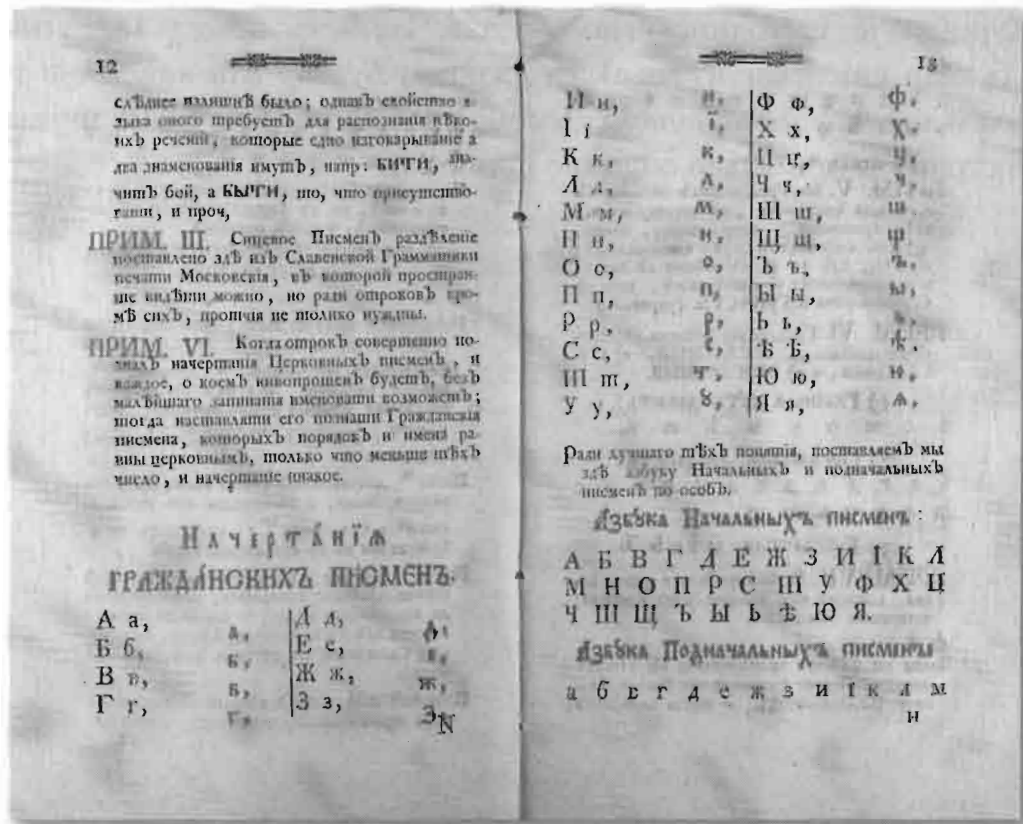 12
слѣднее излишнѣ было; однакЪ свойство я-
зыка оного требуетЪ для распознанія нѣко-
ихЪ реченій, которые едно изговарываніе а
два знаменованія имутЪ, напр: БИТИ, зна-
читЪ бой, а БЫТИ, то, что присутство-
вати, и проч,
ПРИМ. III. Сицевое ПисменЪ раздѣленіе
поставлено здѣ изЪ Славенской Грамматики
печати Московскія, вЪ которой простран-
ше видѣти можно, но ради отроковЪ кро-
мѣ сихЪ, протчія не толико нуждны.
ПРИМ. VI. Когда отрокЪ совершенно по-
зналЪ начертанія ЦерковныхЪ писменЪ, и
каждое, о коемЪ вопрошенЪ будетЪ, безЪ
малѣйшаго запинанія именовати возможетЪ;
тогда наставляти его познати Гражданскія
писмена, которыхЪ порядокЪ и имена ра-
вны церковнымЪ, только что меньше тѣхЪ
число, и начертаніе инакое.
Начерта́нїѧ
ГРАЖДА́НСКИХЪ ПИСМЕНЪ.
А а, а, Д д, д,
Б б, б, Е е, е,
В в, в, Ж ж, ж,
Г г, г, З з, з,
И
13
И и, и, Ф ф, ф,
І і ї, Х х, х,
К к, к, Ц ц, ц,
Л л, л, Ч ч, ч,
М м, м, Ш ш, ш
Н н, н, Щ щ, щ,
О о, о, Ъ ъ, ъ,
П п, п, Ы ы, ы,
Р р, р, Ь ь, ь,
С с, с, Ѣ ѣ, ѣ,
Ш т, т, Ю ю, ю,
У у, ꙋ, Я я, ѧ,
Ради лучшаго тѣхЪ понятія, поставляемЪ мы
здѣ азбуку НачальныхЪ и подначальныхЪ
писменЪ по особЪ.
А҆збꙋка Начальныхъ писмен:
А Б В Г Д Е Ж З И І К Л
М Н О П Р С Ш У Ф Х Ц
Ч Ш Щ Ъ Ы Ь Ѣ Ю Я.
А҆збꙋка Подначальныхъ писмены
а б в г д е ж з и ї к л м
н